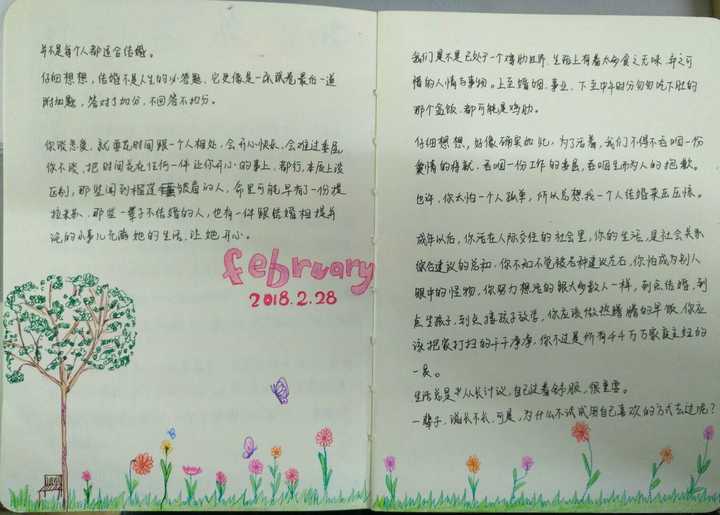 并不是每个人都适合结婚。
仔细想想，结婚不是人生的必答题，它更像是一张试卷最后一道
附加题，答对了加分，不回答不扣分。
你谈恋爱，就要花时间跟一个人相处，会开心快乐，会难过委屈
你不谈，把时间花在任何一件让你开心的事上，都行，本质上没
区别，那些闻到榴莲皱眉的人，命里可能早有一份提
拉米苏，那些一辈子不结婚的人，也有一件跟结婚相提并
论的小事儿充满她的生活，让她开心。
february
2018.2.28
我们是不是已处于一个鸡肋世界，生活上有着太多食之无味，弃之可
惜的人情与事物。上至婚姻、事业，下至中午时分匆匆吃下肚的
那个盒饭，都可能是鸡肋。
仔细想想，好像确实如此，为了活着，我们不得不吞咽一份
爱情的将就，吞咽一份工作的委屈，吞咽生而为人的抱歉。
也许，你太怕一个人孤单，所以总想找一个人结婚来压压惊。
成年以后，你活在人际交往的社会里，你的生活，是社会关系
综合建议的总和，你不知不觉被各种建议左右，你怕成为别人
眼中的怪物，你努力想活的跟大多数人一样，到点结婚，到
点生孩子，到点接孩子放学，你应该做热腾腾的早饭，你应
该把家打扫的干干净净，你不过是所有千千万万家庭主妇的
一员。
生活总是要从长计议，自己过着舒服，很重要。
一辈子，说长不长，可是，为什么不试试用自己喜欢的方式去过呢？